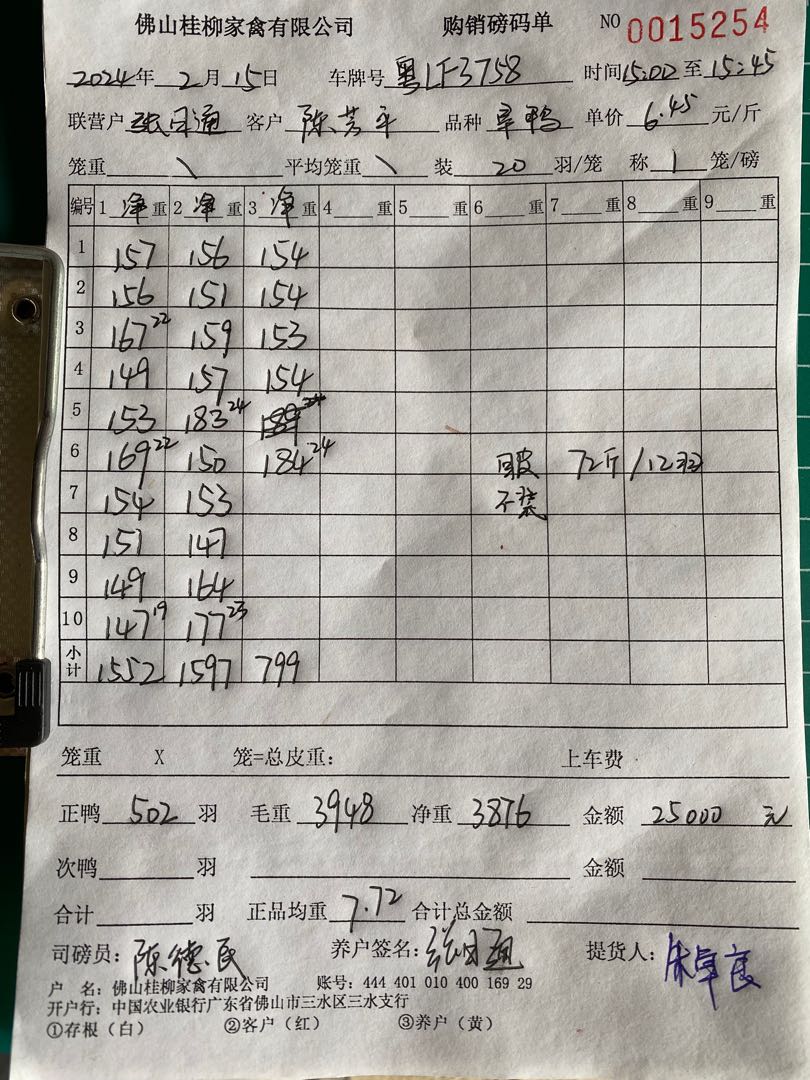 佛山桂柳家禽有限公司 购销磅码单 NO 0015254
2024年 2月 15日 车牌号 粤LF3758 时间15:00至15:45
联营户 张日通 客户 陈芳平 品种 旱鸭 单价 6.45 元/斤
笼重 \ 平均笼重 \ 装 20 羽/笼 称 1 笼/磅
编号 1 净 重 2 净 重 3 净 重 4 重 5 重 6 重 7 重 8 重 9 重
1 157 156 154
2 156 151 154
3 167 22 159 153
4 149 157 154
5 153 183 24
6 169 22 150 184 24 72斤/12羽
7 154 153 不装
8 151 147
9 149 164
10 147 19 177 23
小计 1552 1597 799
笼重 X 笼=总皮重: 上车费
正鸭 502 羽 毛重 3948 净重 3876 金额 25000 元
次鸭 羽 金额
合计 羽 正品均重 7.72 合计总金额
司磅员: 陈德民 养户签名: 张日通 提货人:
户 名: 佛山桂柳家禽有限公司 账号: 444 401 010 400 169 29
开户行: 中国农业银行广东省佛山市三水区三水支行
①存根(白) ②客户(红) ③养户(黄)